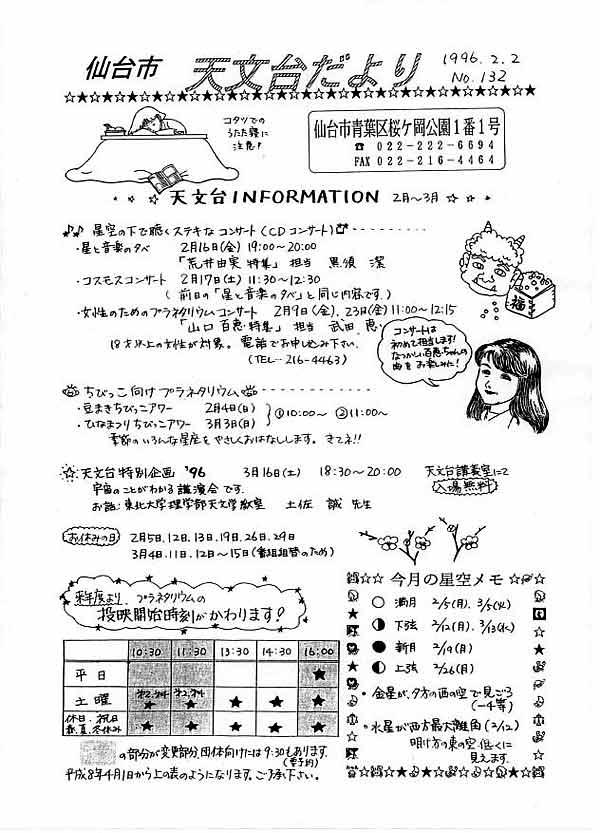 仙台市 天文台だより
1996.2.2
No.132
コタツでの
うたた寝に
注意!
仙台市青葉区桜ケ岡公園1番1号
☎ 022-222-6694
FAX 022-216-4464
天文台INFORMATION 2月〜3月
♪♪ 星空の下で聴くステキなコンサート(CDコンサート)
・星と音楽の夕べ 2月16日(金) 19:00〜20:00
「荒井由実特集」 担当 黒須 潔
・コスモスコンサート 2月17日(土) 11:30〜12:30
(前日の「星と音楽の夕べ」と同じ内容です.)
・女性のためのプラネタリウムコンサート 2月9日(金), 23日(金) 11:00〜12:15
「山口百恵特集」 担当 武田 恵
18才以上の女性が対象。電話でお申し込み下さい.
(TEL 216-4463)
福
コンサートは
初めて担当します!
なつかしい百恵ちゃんの
曲をお楽しみに!
ちびっこ向けプラネタリウム
・豆まきちびっこアワー 2月4日(日)
・ひなまつりちびっこアワー 3月3日(日)
①10:00〜 ②11:00〜
季節のいろんな星座をやさしくおはなしします。きてネ!!
☆ 天文台特別企画 '96 3月16日(土) 18:30〜20:00 天文台講義室にて
宇宙のことがわかる講演会です. 入場無料
お話: 東北大学理学部天文学教室 土佐 誠 先生
お休みの日 2月5日,12日,13日,19日,26日,29日
3月4日,11日,12日〜15日(番組組替のため)
来年度より プラネタリウムの
投映開始時刻がかわります!
10:30 11:30 13:30 14:30 16:00
平日 ★
土曜 第2,第4★ 第2,第4★ ★ ★ ★
休日・祝日
春,夏,冬休み ★ ★ ★ ★ ★
の部分が変更部分,団体向けには9:30もあります.
(要予約)
平成8年4月1日から上の表のようになります。ご了承下さい。
今月の星空メモ
○ 満月 2/5(月), 3/5(火)
下弦 2/12(月), 3/13(水)
● 新月 2/19(月)
上弦 2/26(月)
・金星が,夕方の西の空で見ごろ
(−4等)
・水星が西方最大離角(2/12)
明け方の東の空,低くに
見えます.